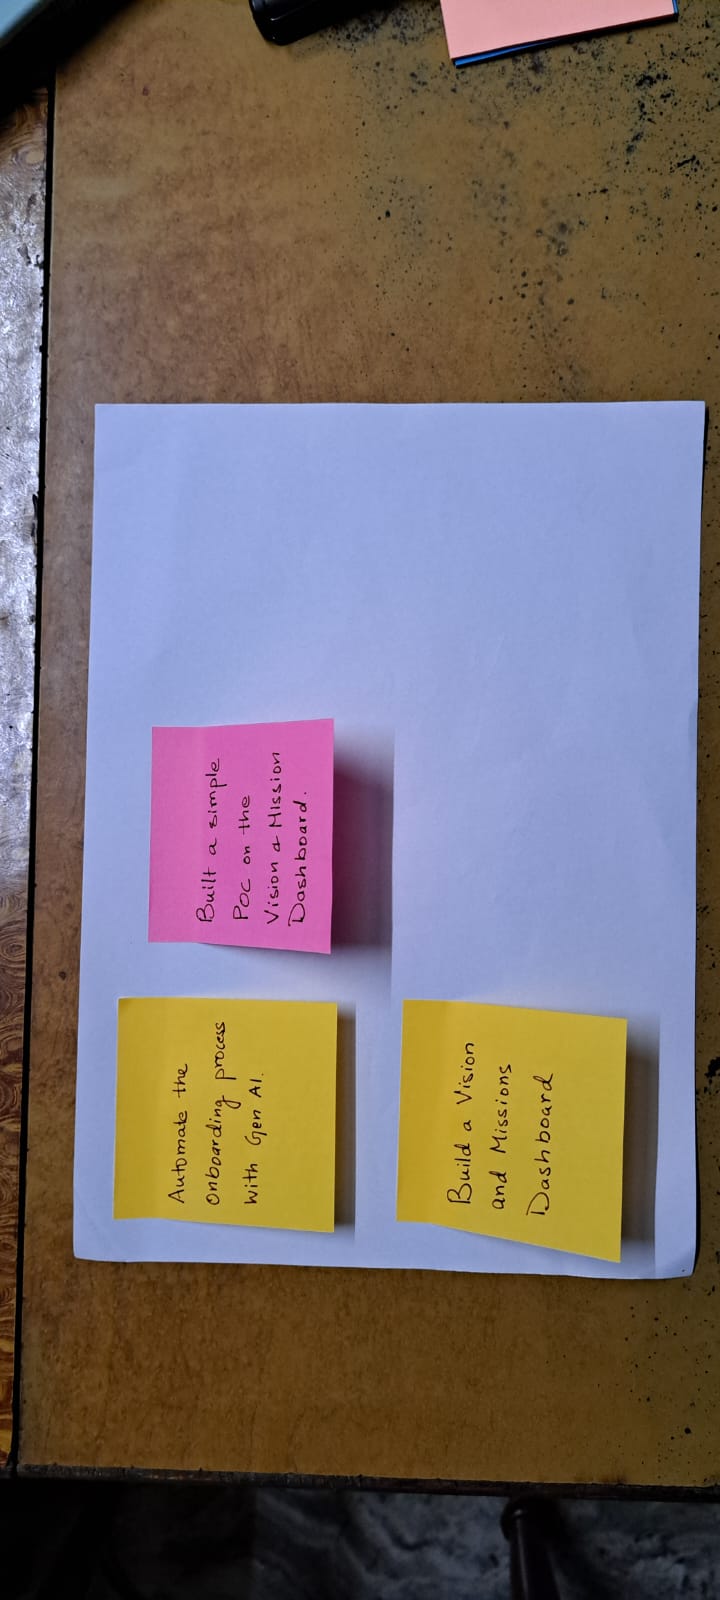 Automate the
Onboarding process
with Gen AI.
Built a simple
POC on the
Vision & Mission
Dashboard.
Build a Vision
and Missions
Dashboard